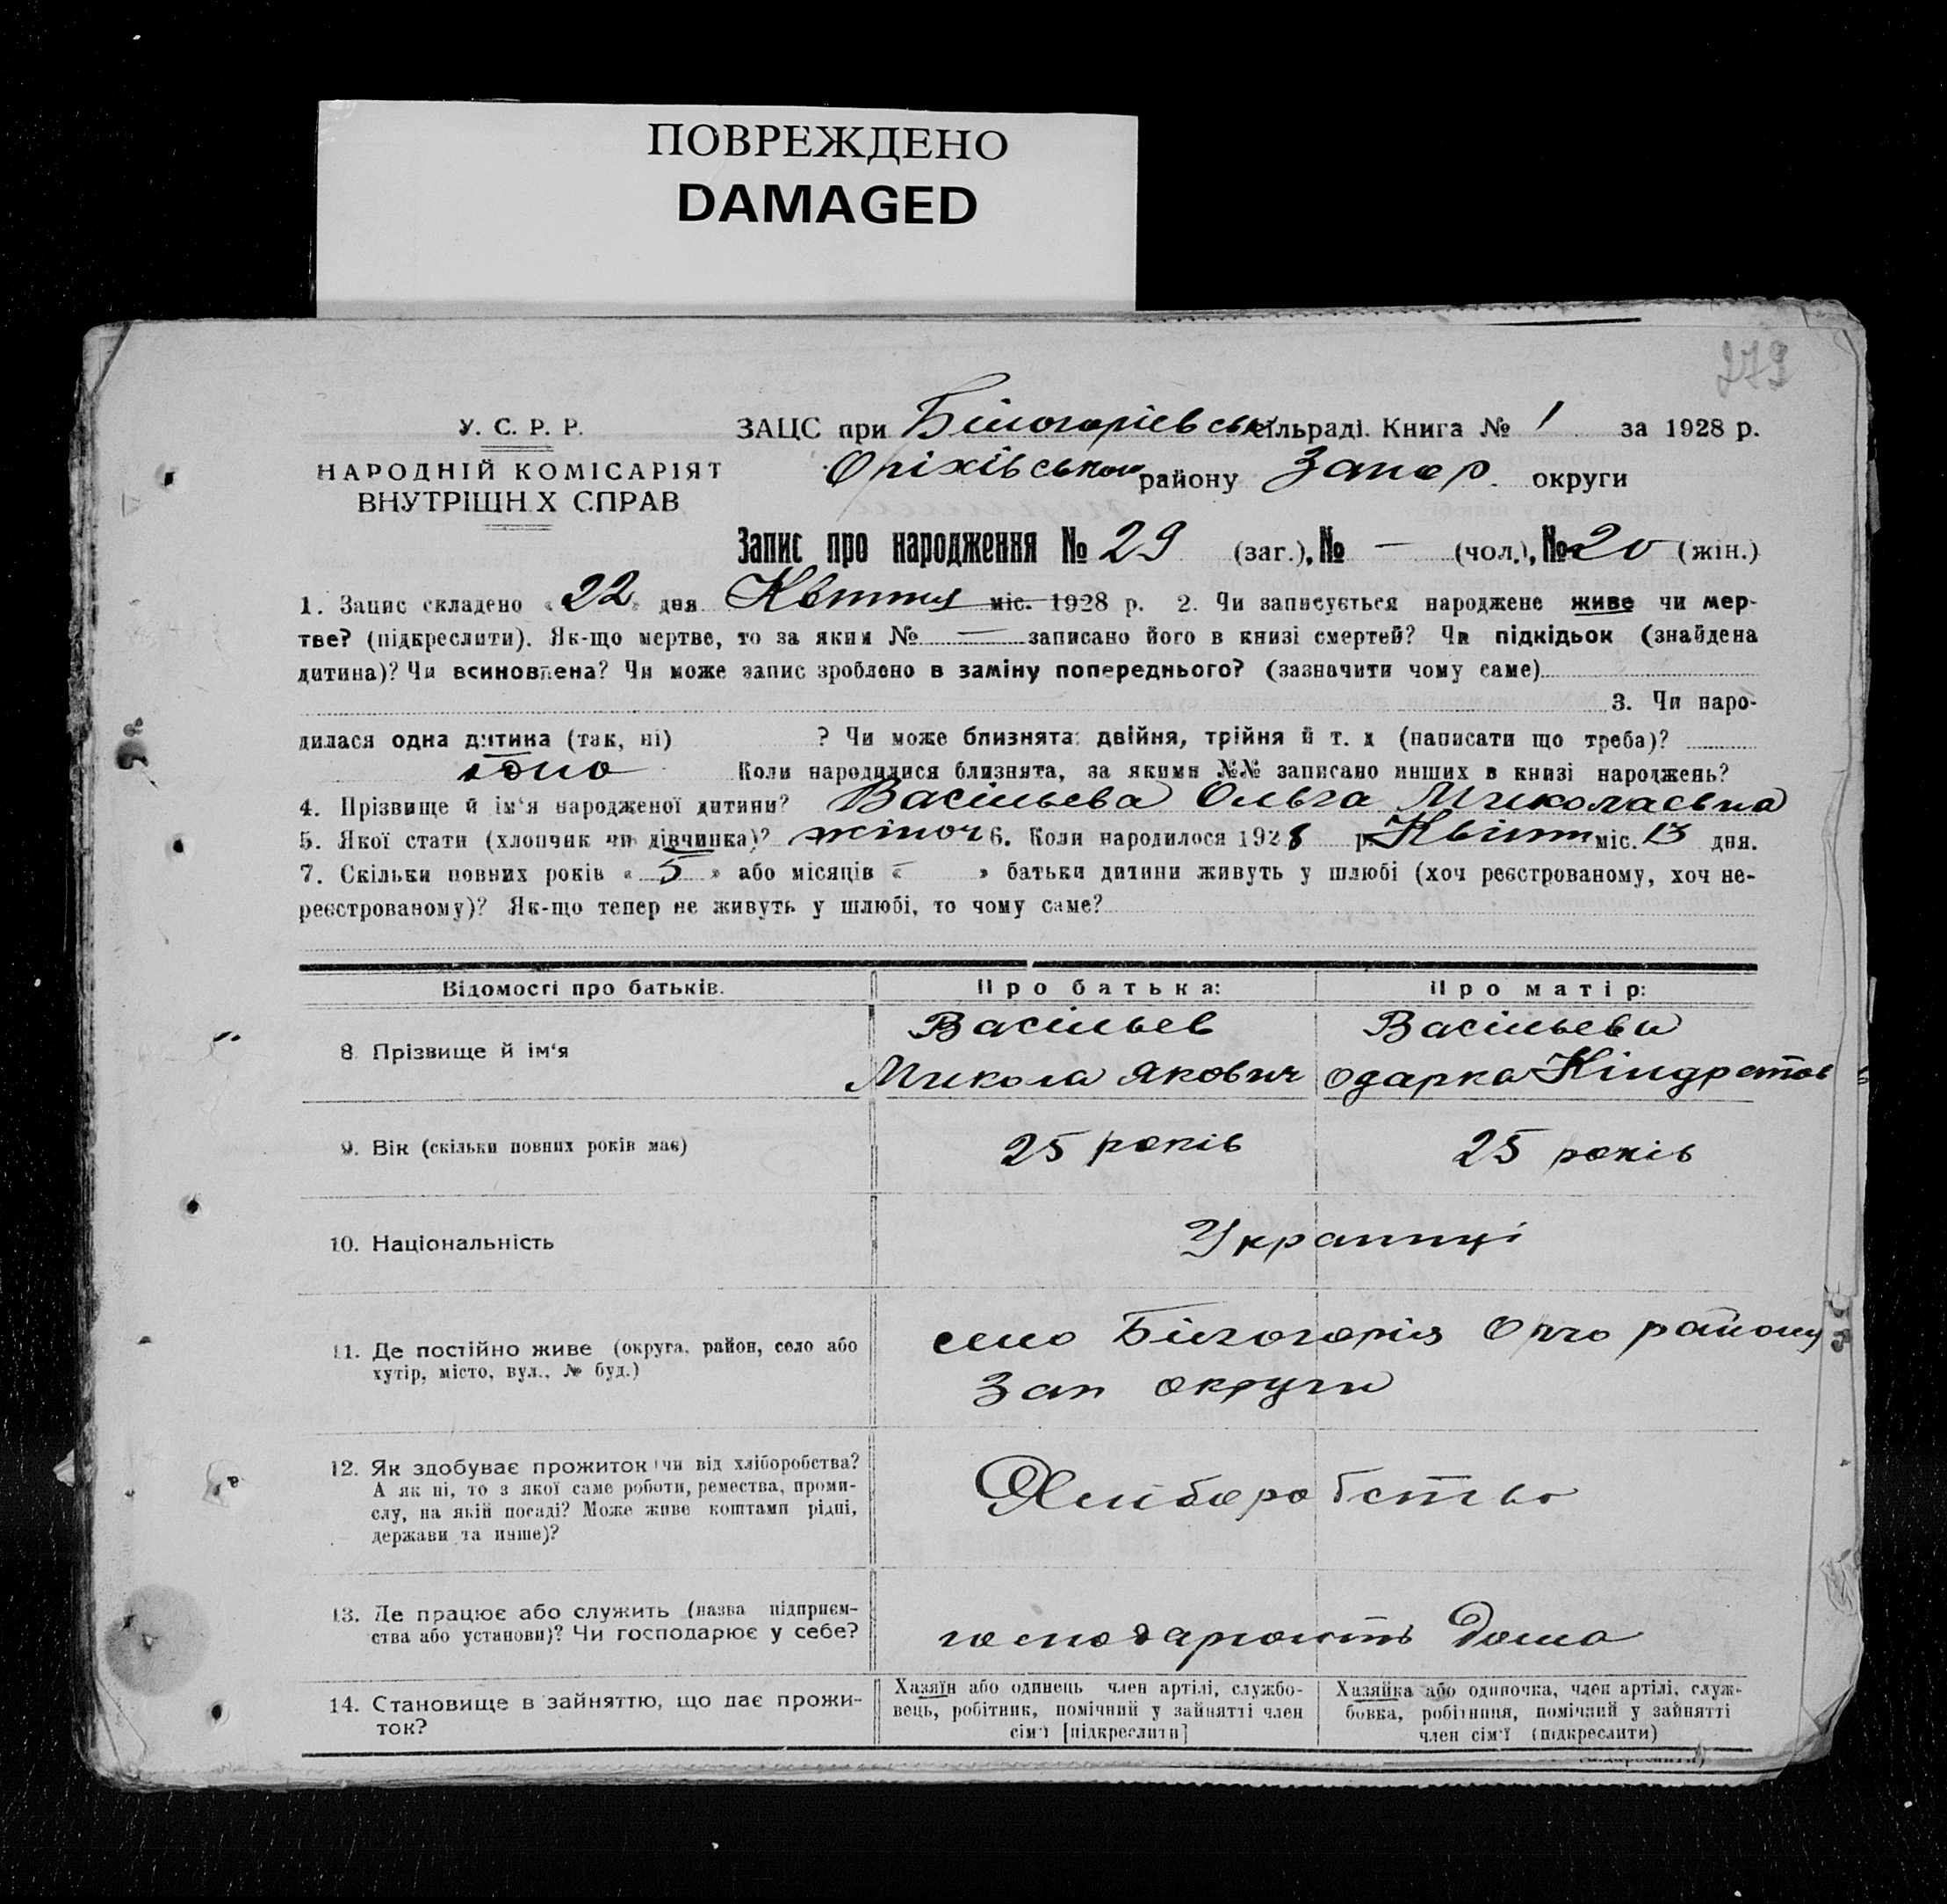 ПОВРЕЖДЕНО
DAMAGED
279
У. С. Р. Р.
НАРОДНІЙ КОМІСАРІЯТ
ВНУТРІШН Х СПРАВ
ЗАЦС при Білогорієвськ сільраді. Книга № 1 за 1928 р.
Оріхівського району Запор. округи
Запис про народження № 29 (заг.), № — (чол.), № 20 (жін.)
1. Запис складено „22" дня Квітня міс. 1928 р. 2. Чи записується народжене живе чи мер-
тве? (підкреслити). Як-що мертве, то за яким № — записано його в книзі смертей? Чи підкідьок (знайдена
дитина)? Чи всиновлена? Чи може запис зроблено в заміну попереднього? (зазначити чому саме)
3. Чи наро-
дилася одна дитина (так, ні) ? Чи може близнята: двійня, трійня й т. д (написати що треба)?
одно Коли народилися близнята, за якими №№ записано инших в книзі народжень?
4. Прізвище й ім'я народженої дитини? Васільева Ольга Миколаевна
5. Якої стати (хлопчик чи дівчинка)? жіноч 6. Коли народилося 1928 р. Квітн міс. 13 дня.
7. Скільки повних років „5" або місяців „—" батьки дитини живуть у шлюбі (хоч реєстрованому, хоч не-
реєстрованому)? Як-що тепер не живуть у шлюбі, то чому саме?
Відомості про батьків. Про батька: Про матір:
8 Прізвище й ім'я Васільев Микола Якович Васільева Одарка Кіндратов
9. Вік (скільки повних років має) 25 років 25 років
10. Національність Украинці
11. Де постійно живе (округа, район, село або
хутір, місто, вул., № буд.)
село Білогорія Ор-го району
Зап округи
12. Як здобуває прожиток (чи від хліборобства?
А як ні, то з якої саме роботи, ремества, проми-
слу, на якій посаді? Може живе коштами рідні,
держави та инше)?
Хлиборобство
13. Де працює або служить (назва підприєм-
ства або установи)? Чи господарює у себе?
господарюють Дома
14. Становище в зайняттю, що дає прожи-
ток?
Хазяїн або одинець член артілі, службо-
вець, робітник, помічний у зайнятті член
сім'ї [підкреслити]
Хазяйка або одиночка, член артілі, служ-
бовка, робітниця, помічний у зайнятті
член сім'ї (підкреслити)